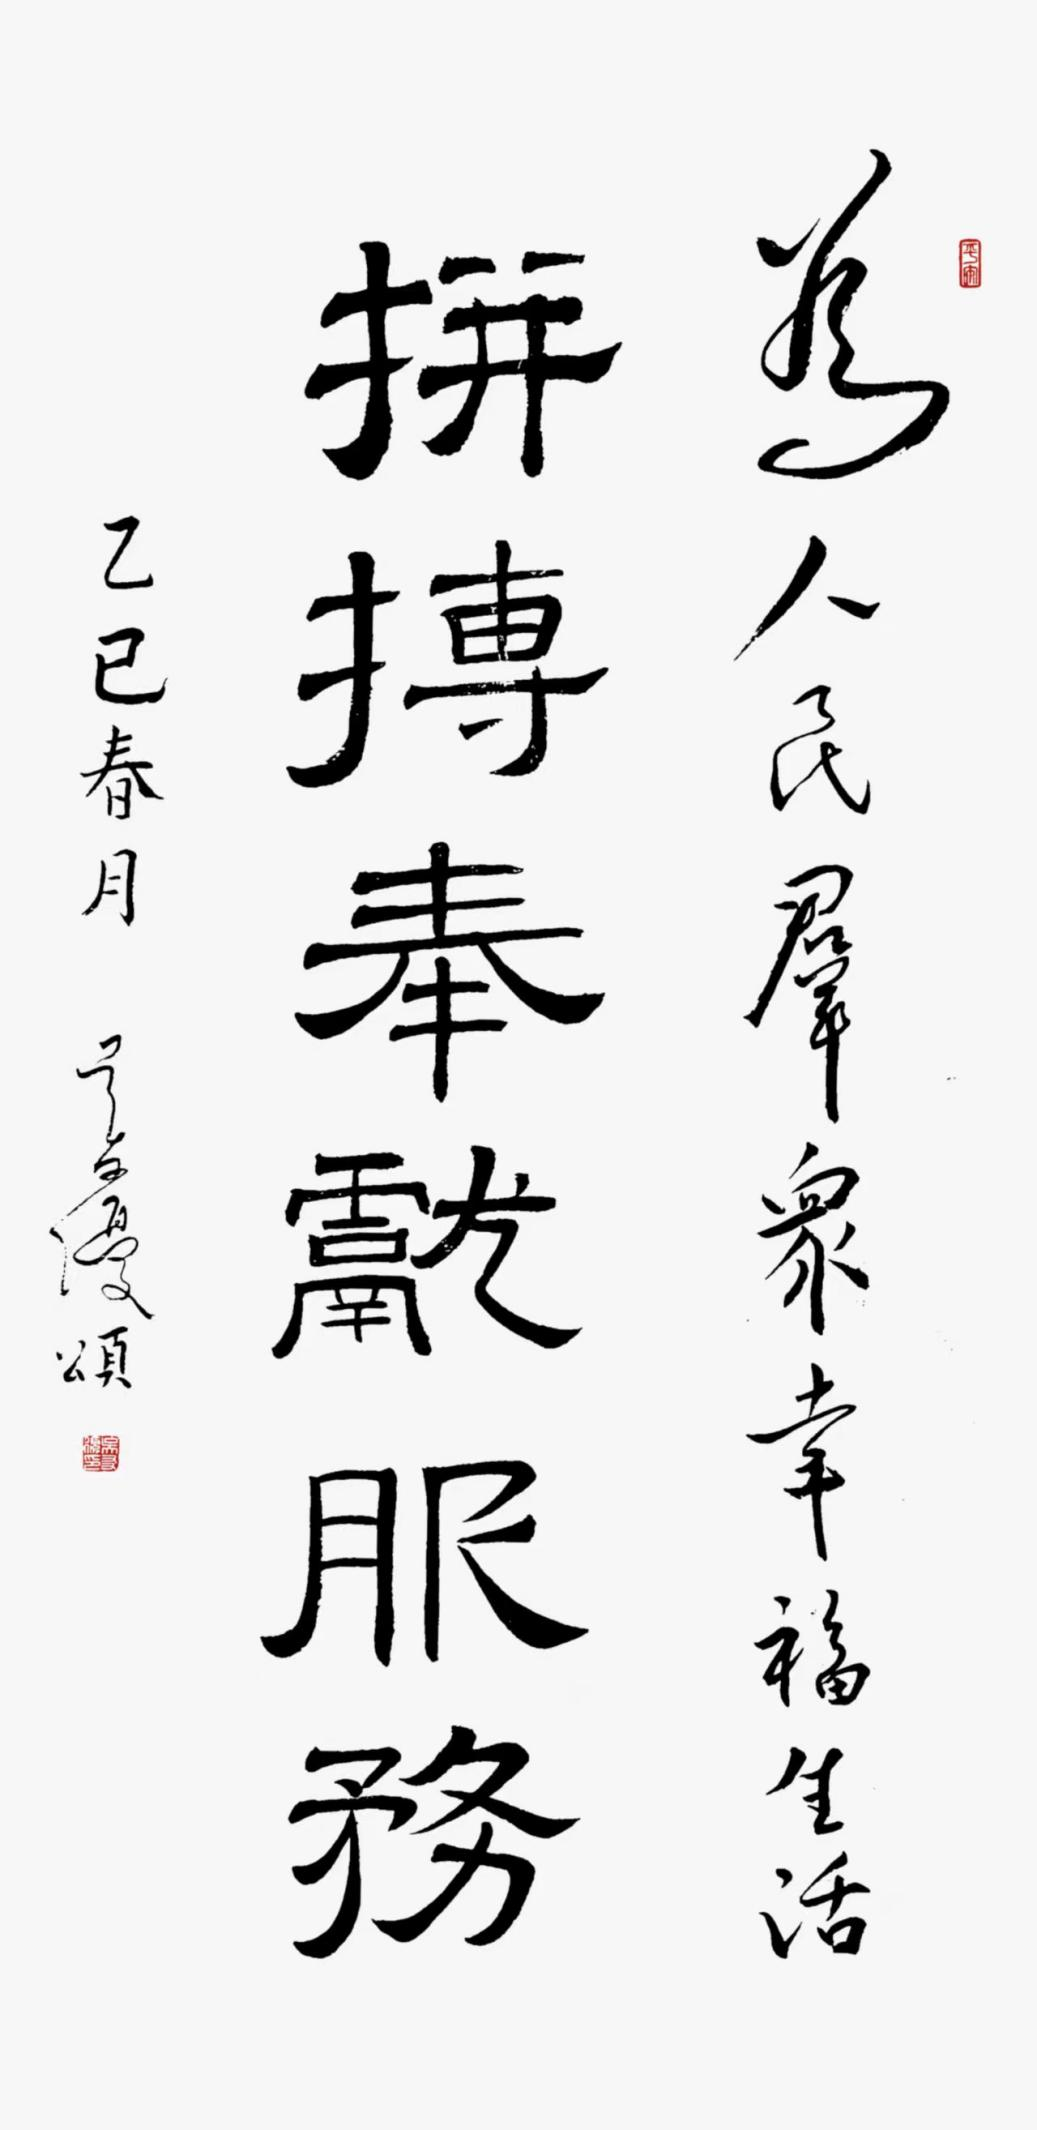 為人民羣衆幸福生活
拼搏奉獻服務
乙巳春月 吴友優頌